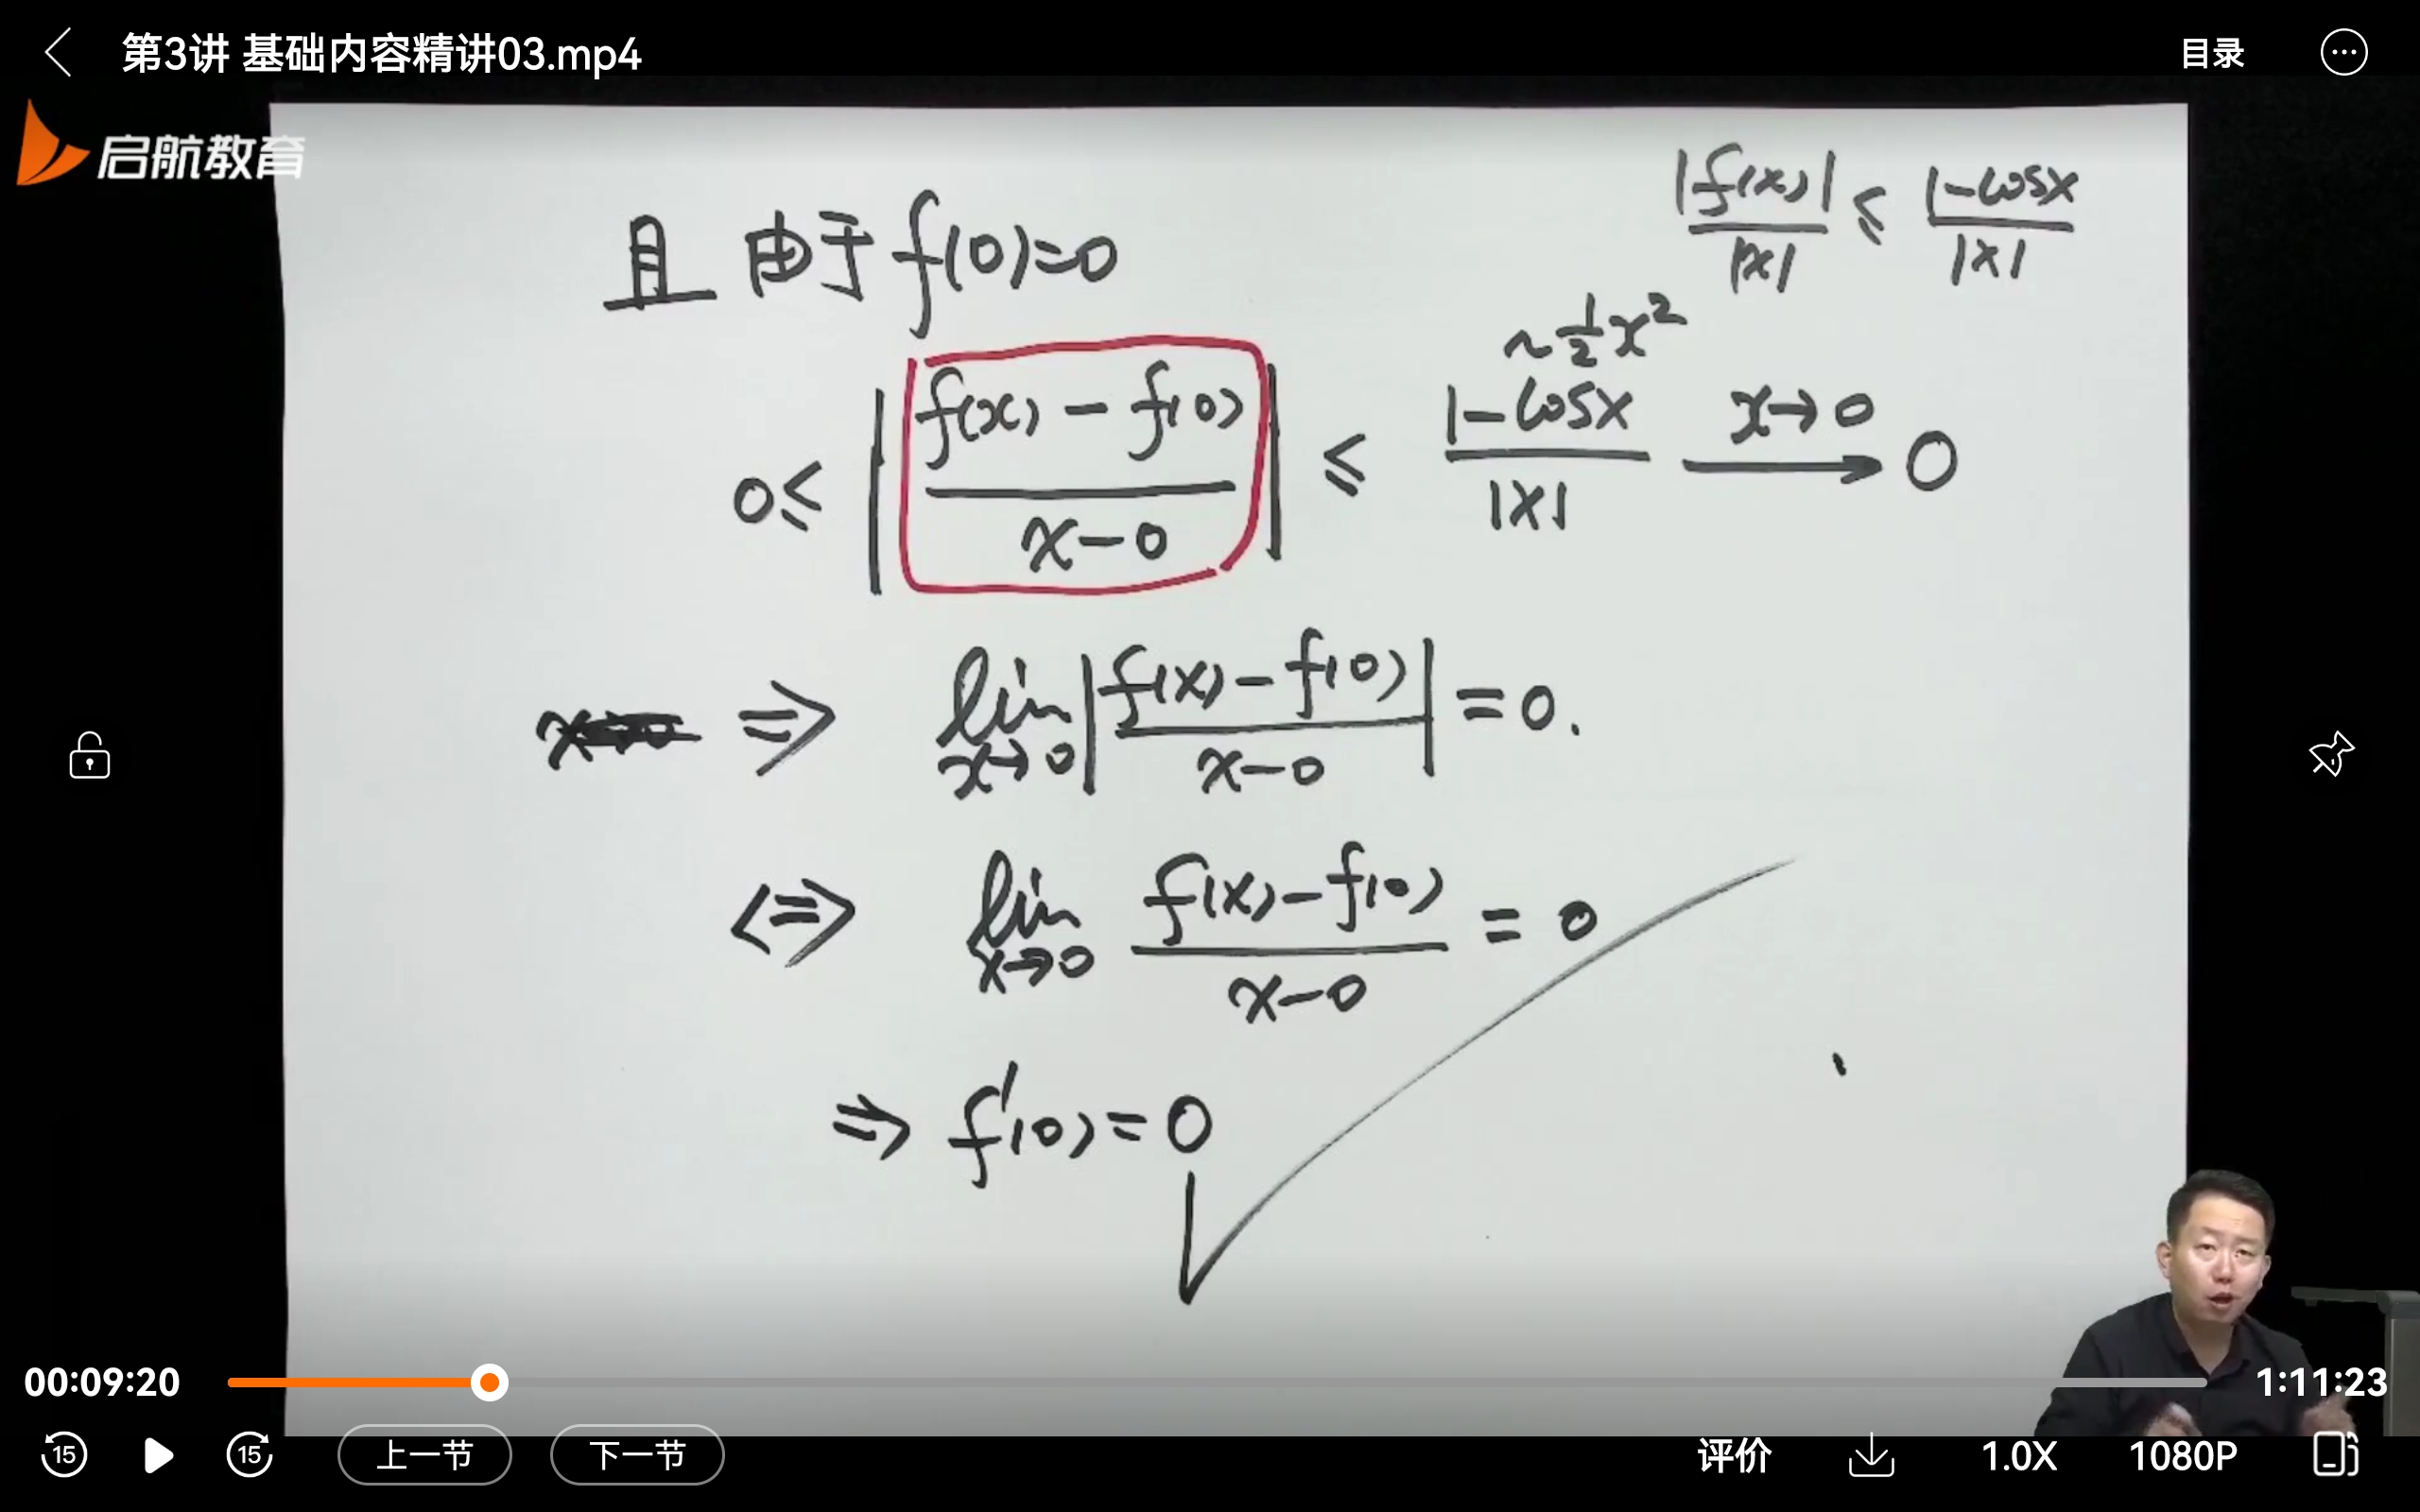 第3讲 基础内容精讲03.mp4
目录
启航教育
|f(x)|/|x| ≤ 1-cosx/|x|
且 由于 f(0)=0
~1/2 x²
0≤ |f(x)-f(0)/x-0| ≤ 1-cosx/|x| x→0 → 0
⇒ lim x→0 |f(x)-f(0)/x-0| =0.
<=> lim x→0 f(x)-f(0)/x-0 = 0
⇒ f'(0)=0
00:09:20
1:11:23
15
15
上一节
下一节
评价
1.0X
1080P